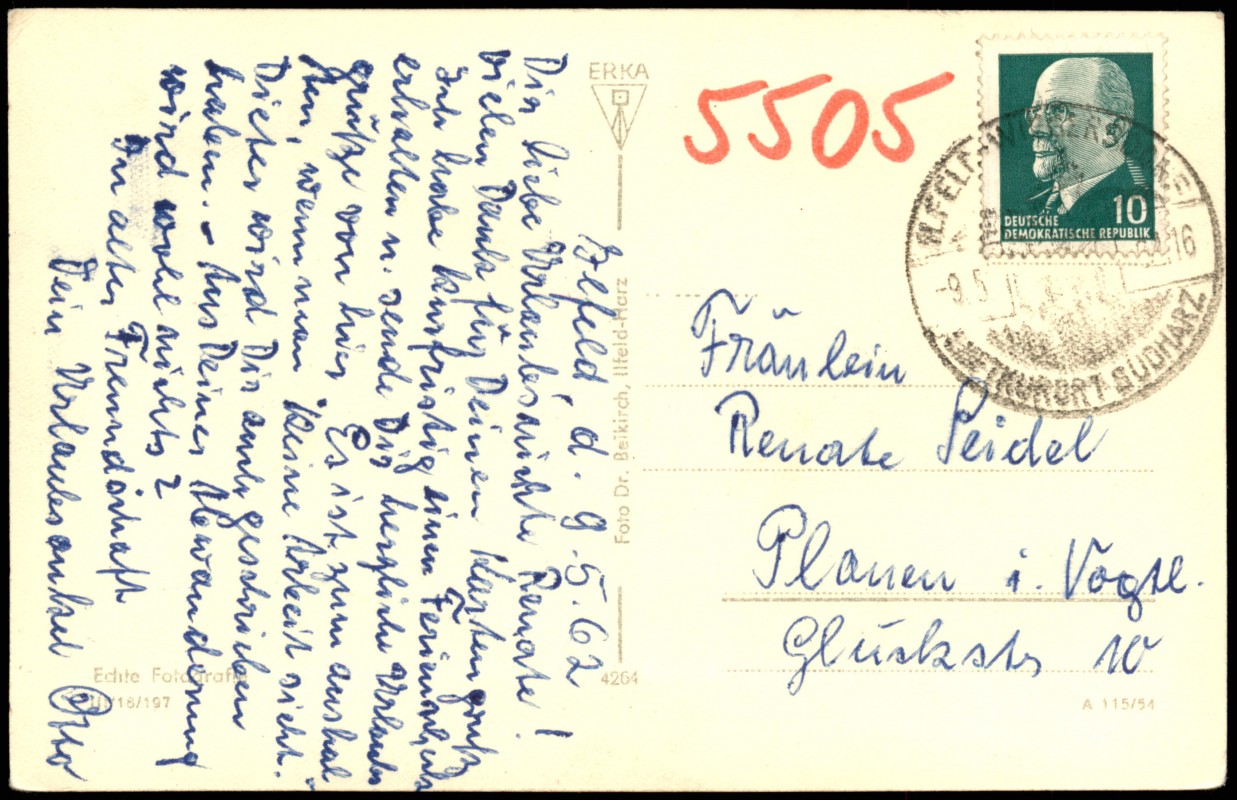 Ilfeld d. 9.5.62
Du liebe Urlaubsnichte Renate!
Vielen Dank für Deinen Kartengruß
Ich habe kurfristig einen Ferienscheck
erhalten u. sende Dir herzliche Urlaubs
grüße von hier. Es ist zum aushal-
ten, wenn man keine Arbeit sieht.
Dieter wird Dir auch geschrieben
haben. – Aus Deiner
wird wohl nichts?
In alter Freundschaft
Dein Urlaubsonkel Otto
ERKA
Foto Dr. Beikirch, Ilfeld-Harz
4264
Echte Fotografie
III/18/197
5505
10
DEUTSCHE
DEMOKRATISCHE REPUBLIK
ILFELD-
-9.5
16
LUFTKURORT·SÜDHARZ
Fräulein
Renate Seidel
Plauen i. Vogtl.
Gluckstr 10
A 115/54